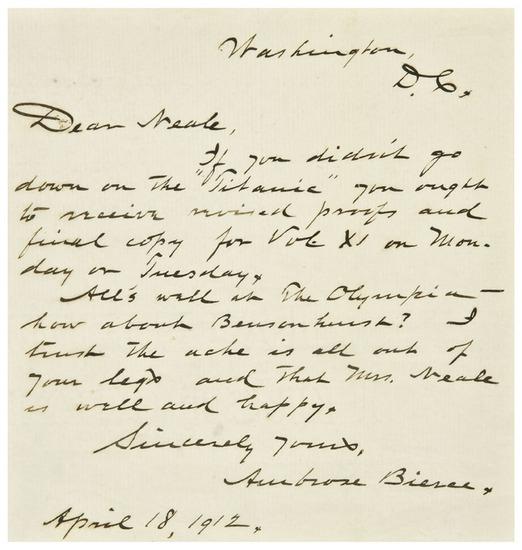 Washington,
D.C.
Dear Neale,
If you didn't go
down on the "Titanic" you ought
to receive revised proofs and
final copy for Vol XI on Mon-
day or Tuesday.
All's well at The Olympia —
how about Bensonhurst? I
trust the ache is all out of
your legs and that Mrs. Neale
is well and happy.
Sincerely yours,
Ambrose Bierce.
April 18, 1912.